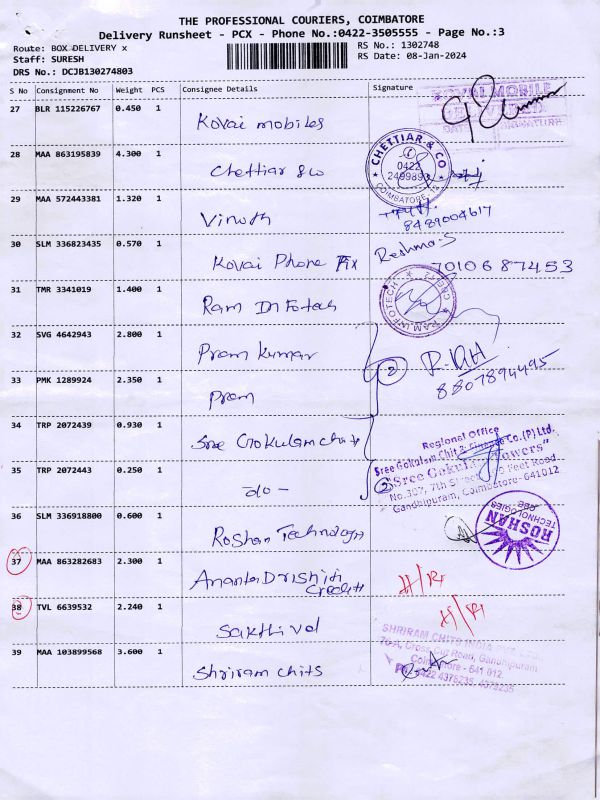 THE PROFESSIONAL COURIERS, COIMBATORE
Delivery Runsheet - PCX - Phone No.:0422-3505555 - Page No.:3
Route: BOX DELIVERY x
RS No.: 1302748
Staff: SURESH
RS Date: 08-Jan-2024
DRS No.: DCJB130274803
S No Consignment No Weight PCS Consignee Details Signature
27 BLR 115226767 0.450 1 Kovai mobiles
KOVAI MOBILE
28 MAA 863195839 4.300 1 Chettiar & co
CHETTIAR & CO
0422
COIMBATORE-12
29 MAA 572443381 1.320 1 Vinoth
8489004617
30 SLM 336823435 0.570 1 Kovai Phone Fix
Reshma.S
7010687453
31 TMR 3341019 1.400 1 Ram Infotech
RAM INFOTECH
32 SVG 4642943 2.800 1 Prem Kumar
2
8807894495
33 PMK 1289924 2.350 1 Prem
34 TRP 2072439 0.930 1 Sree Gokulam chits
Regional Office
Sree Gokulam Chit & Finance Co.(P) Ltd.
35 TRP 2072443 0.250 1 -do-
2
"Sree Gokulam Towers"
No.307, 7th Street, 100 Feet Road,
Gandhipuram, Coimbatore-641012
36 SLM 336918800 0.600 1 Roshan Technology
ROSHAN
TECHNOLOGIES
CBE
37 MAA 863282683 2.300 1 Ananta Drishti
Credits
H/R
38 TVL 6639532 2.240 1 Sakthivel
H/R
39 MAA 103899568 3.600 1 Shriram chits
SHRIRAM CHITS INDIA PVT. LTD.
Cross Cut Road, Gandhipuram
Coimbatore - 641 012
0422 4376235, 4378235